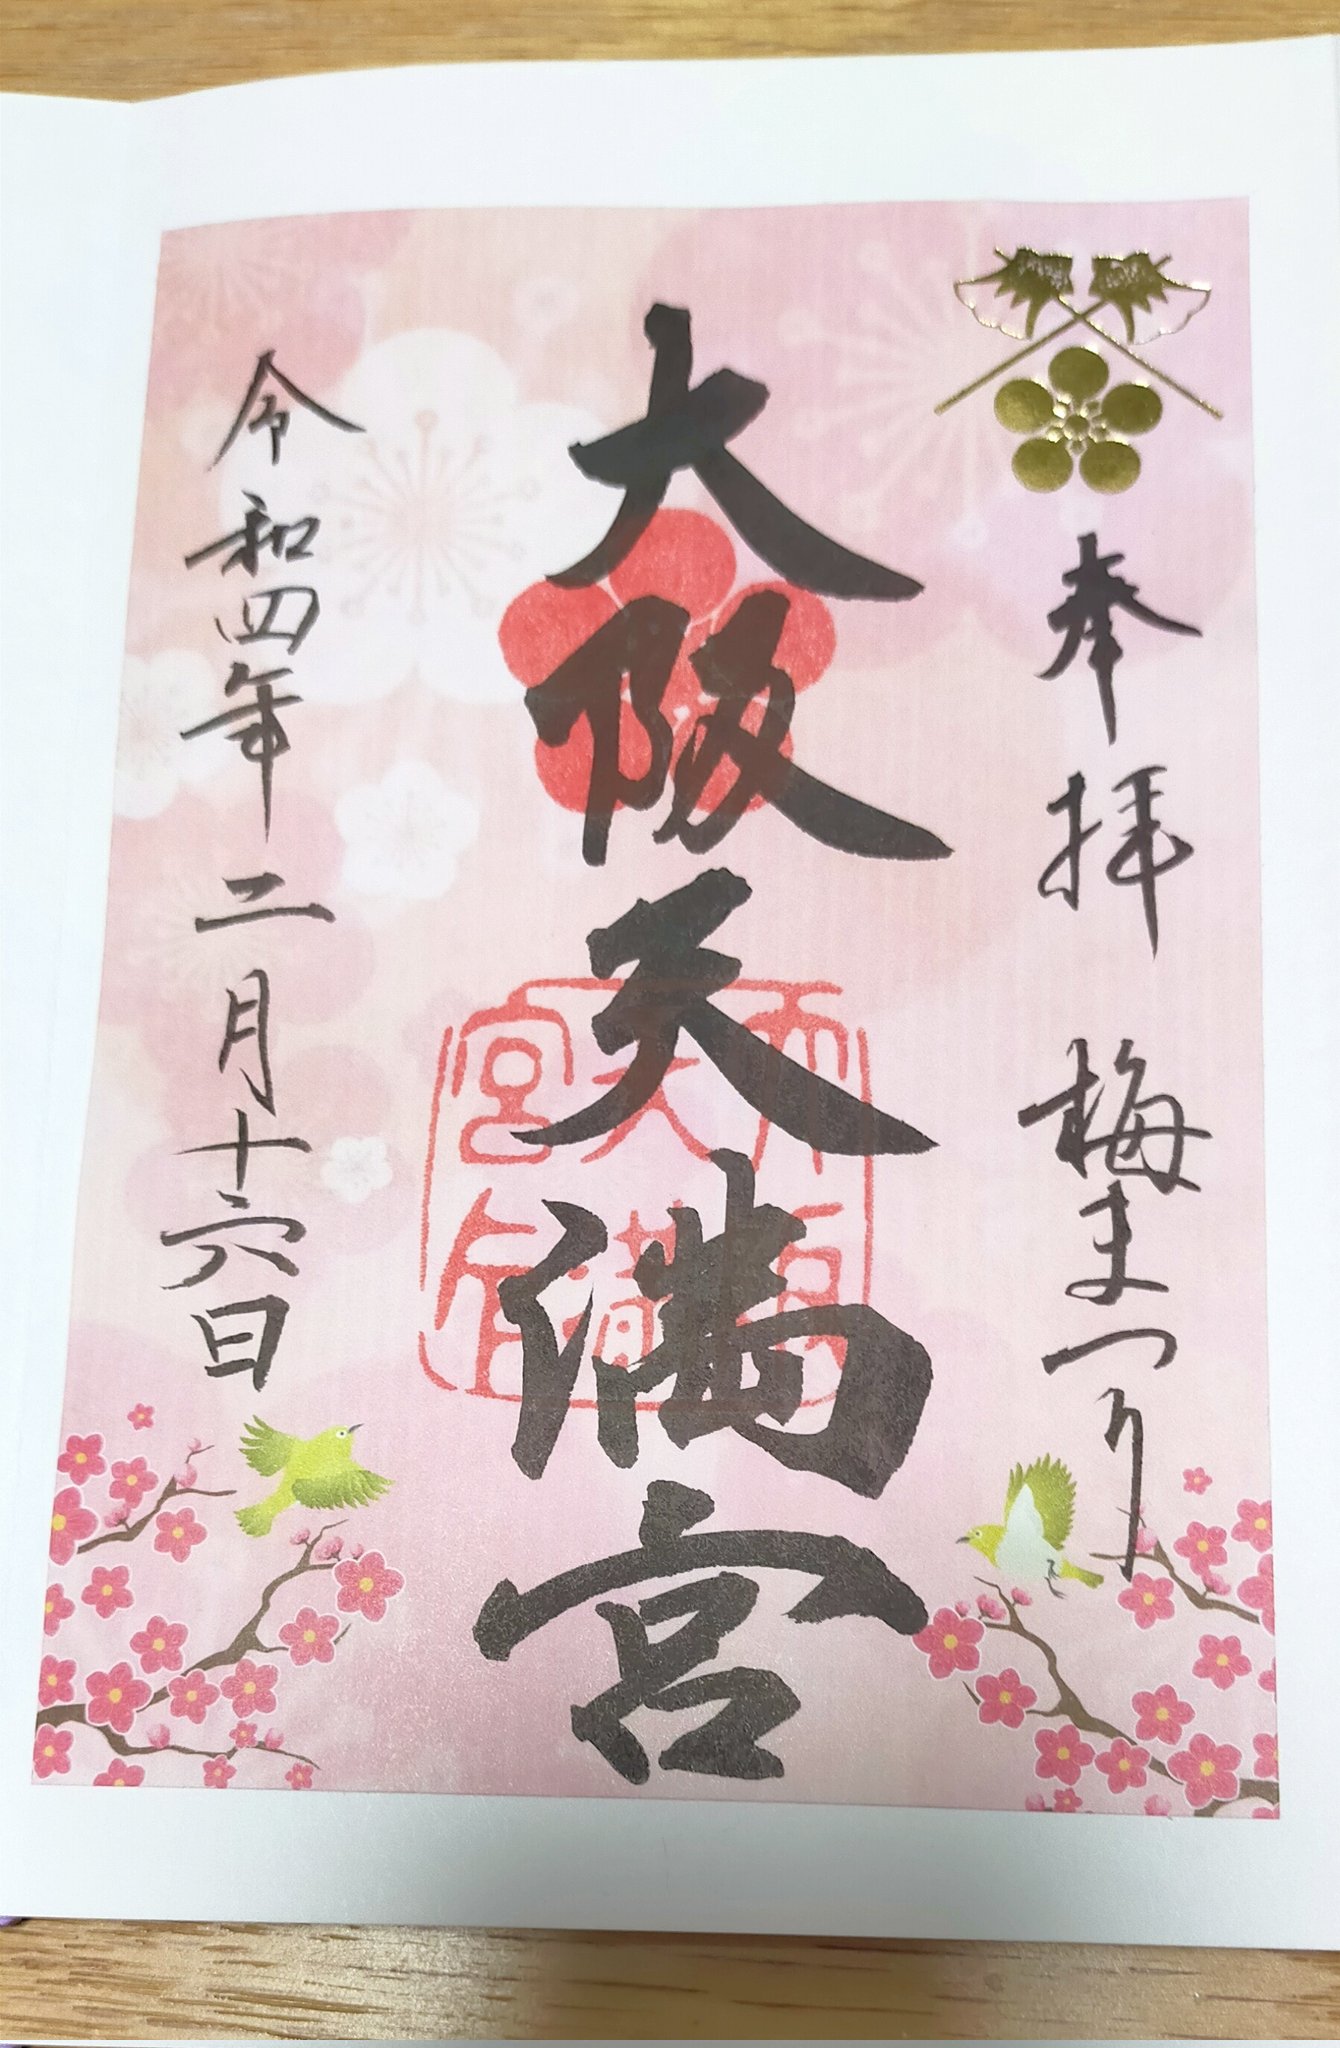 奉拝 梅まつり
大阪天満宮
令和四年二月十六日